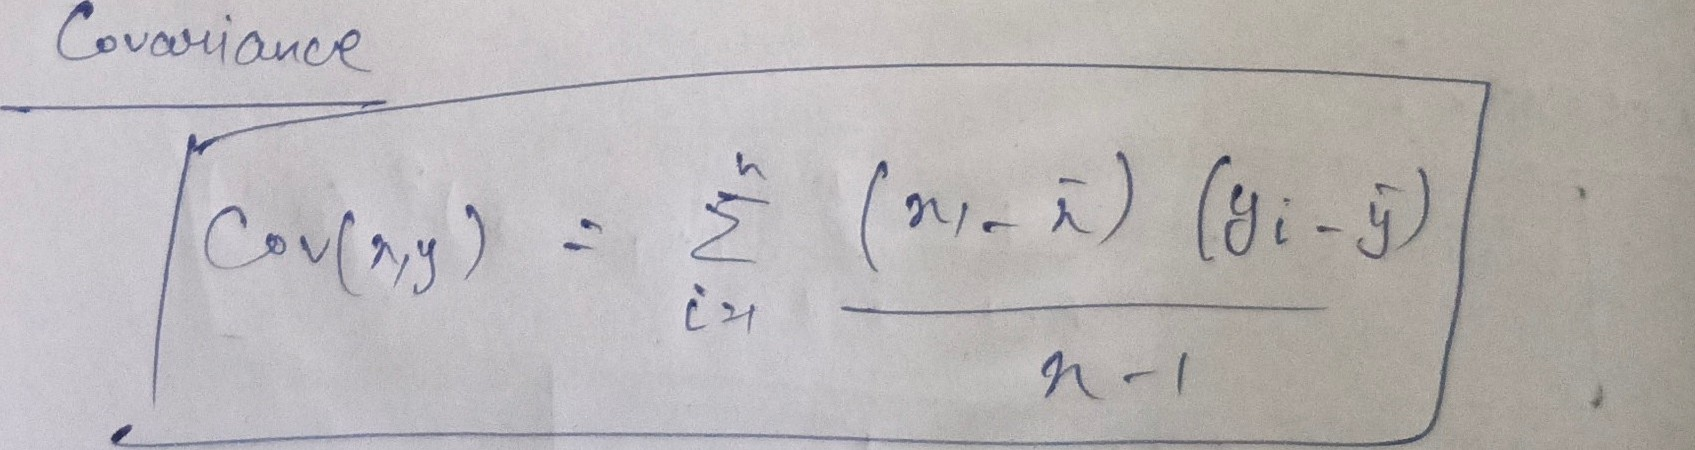 Covariance
Cov(x,y) = n∑i=1 (x1 - x̄) (yi - ȳ)
n - 1